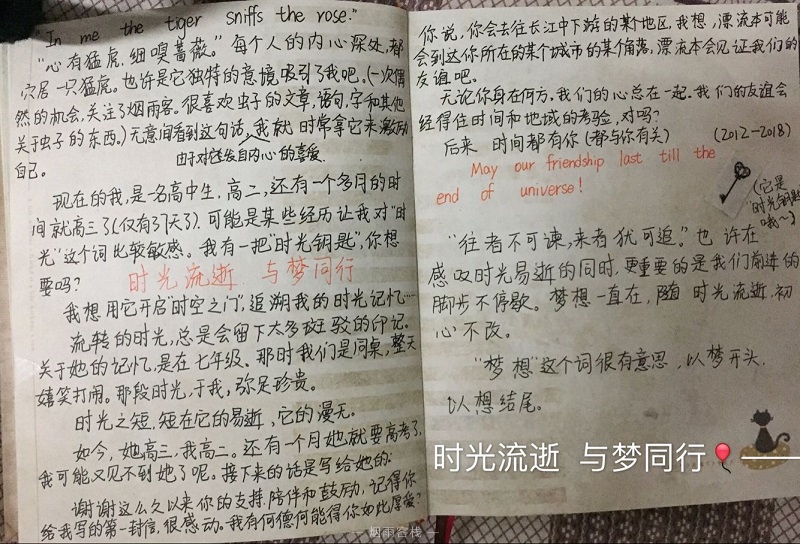 "In me the tiger sniffs the rose."
"心有猛虎,细嗅蔷薇。"每个人的内心深处,都
穴居一只猛虎。也许是它独特的意境吸引了我吧,(一次偶
然的机会,关注了烟雨客。很喜欢虫子的文章,语句,字和其他
关于虫子的东西。)无意间看到这句话,我就时常拿它来激励
由于对它发自内心的喜爱
自己。
现在的我,是一名高中生,高二,还有一个多月的时
间就高三了(仅有了天了)。可能是某些经历让我对"时
光"这个词比较敏感。我有一把"时光钥匙",你想
要吗?
时光流逝 与梦同行
我想用它开启"时空之门",追溯我的时光记忆…
流转的时光,总是会留下太多斑驳的印记。
关于她的记忆,是在七年级。那时我们是同桌,整天
嬉笑打闹。那段时光,于我,弥足珍贵。
时光之短,短在它的易逝,它的漫无。
如今,她高三,我高二。还有一个月她就要高考了,
我可能又见不到她了呢。接下来的话是写给她的:
谢谢这么久以来你的支持,陪伴和鼓励,记得你
给我写的第一封信,很感动。我有何德何能得你如此厚爱?
你说,你会去往长江中下游的某个地区,我想,漂流本可能
会到达你所在的某个城市的某个角落,漂流本会见证我们的
友谊吧。
无论你身在何方,我们的心总在一起。我们的友谊会
经得住时间和地域的考验,对吗?
后来 时间都有你(都与你有关) (2012-2018)
May our friendship last till the
end of universe!
(它是
时光钥匙
哦~)
"往者不可谏,来者犹可追。"也许在
感叹时光易逝的同时,更重要的是我们前进的
脚步不停歇。梦想一直在,随时光流逝,初
心不改。
"梦想"这个词很有意思,以梦开头,
以想结尾。
时光流逝 与梦同行🎈——
— 烟雨客栈 —